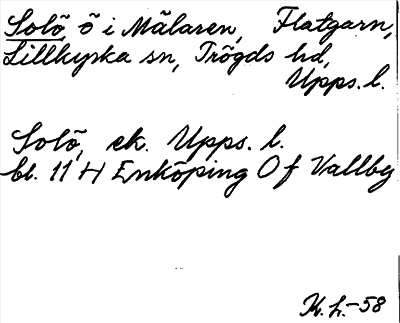 Solö, ö i Mälaren, Flatgarn,
Lillkyrka sn, Trögds hd,
Upps. l.
Solö, ek. Upps. l.
bl. 11 H Enköping O f Vallby
K. L. -58